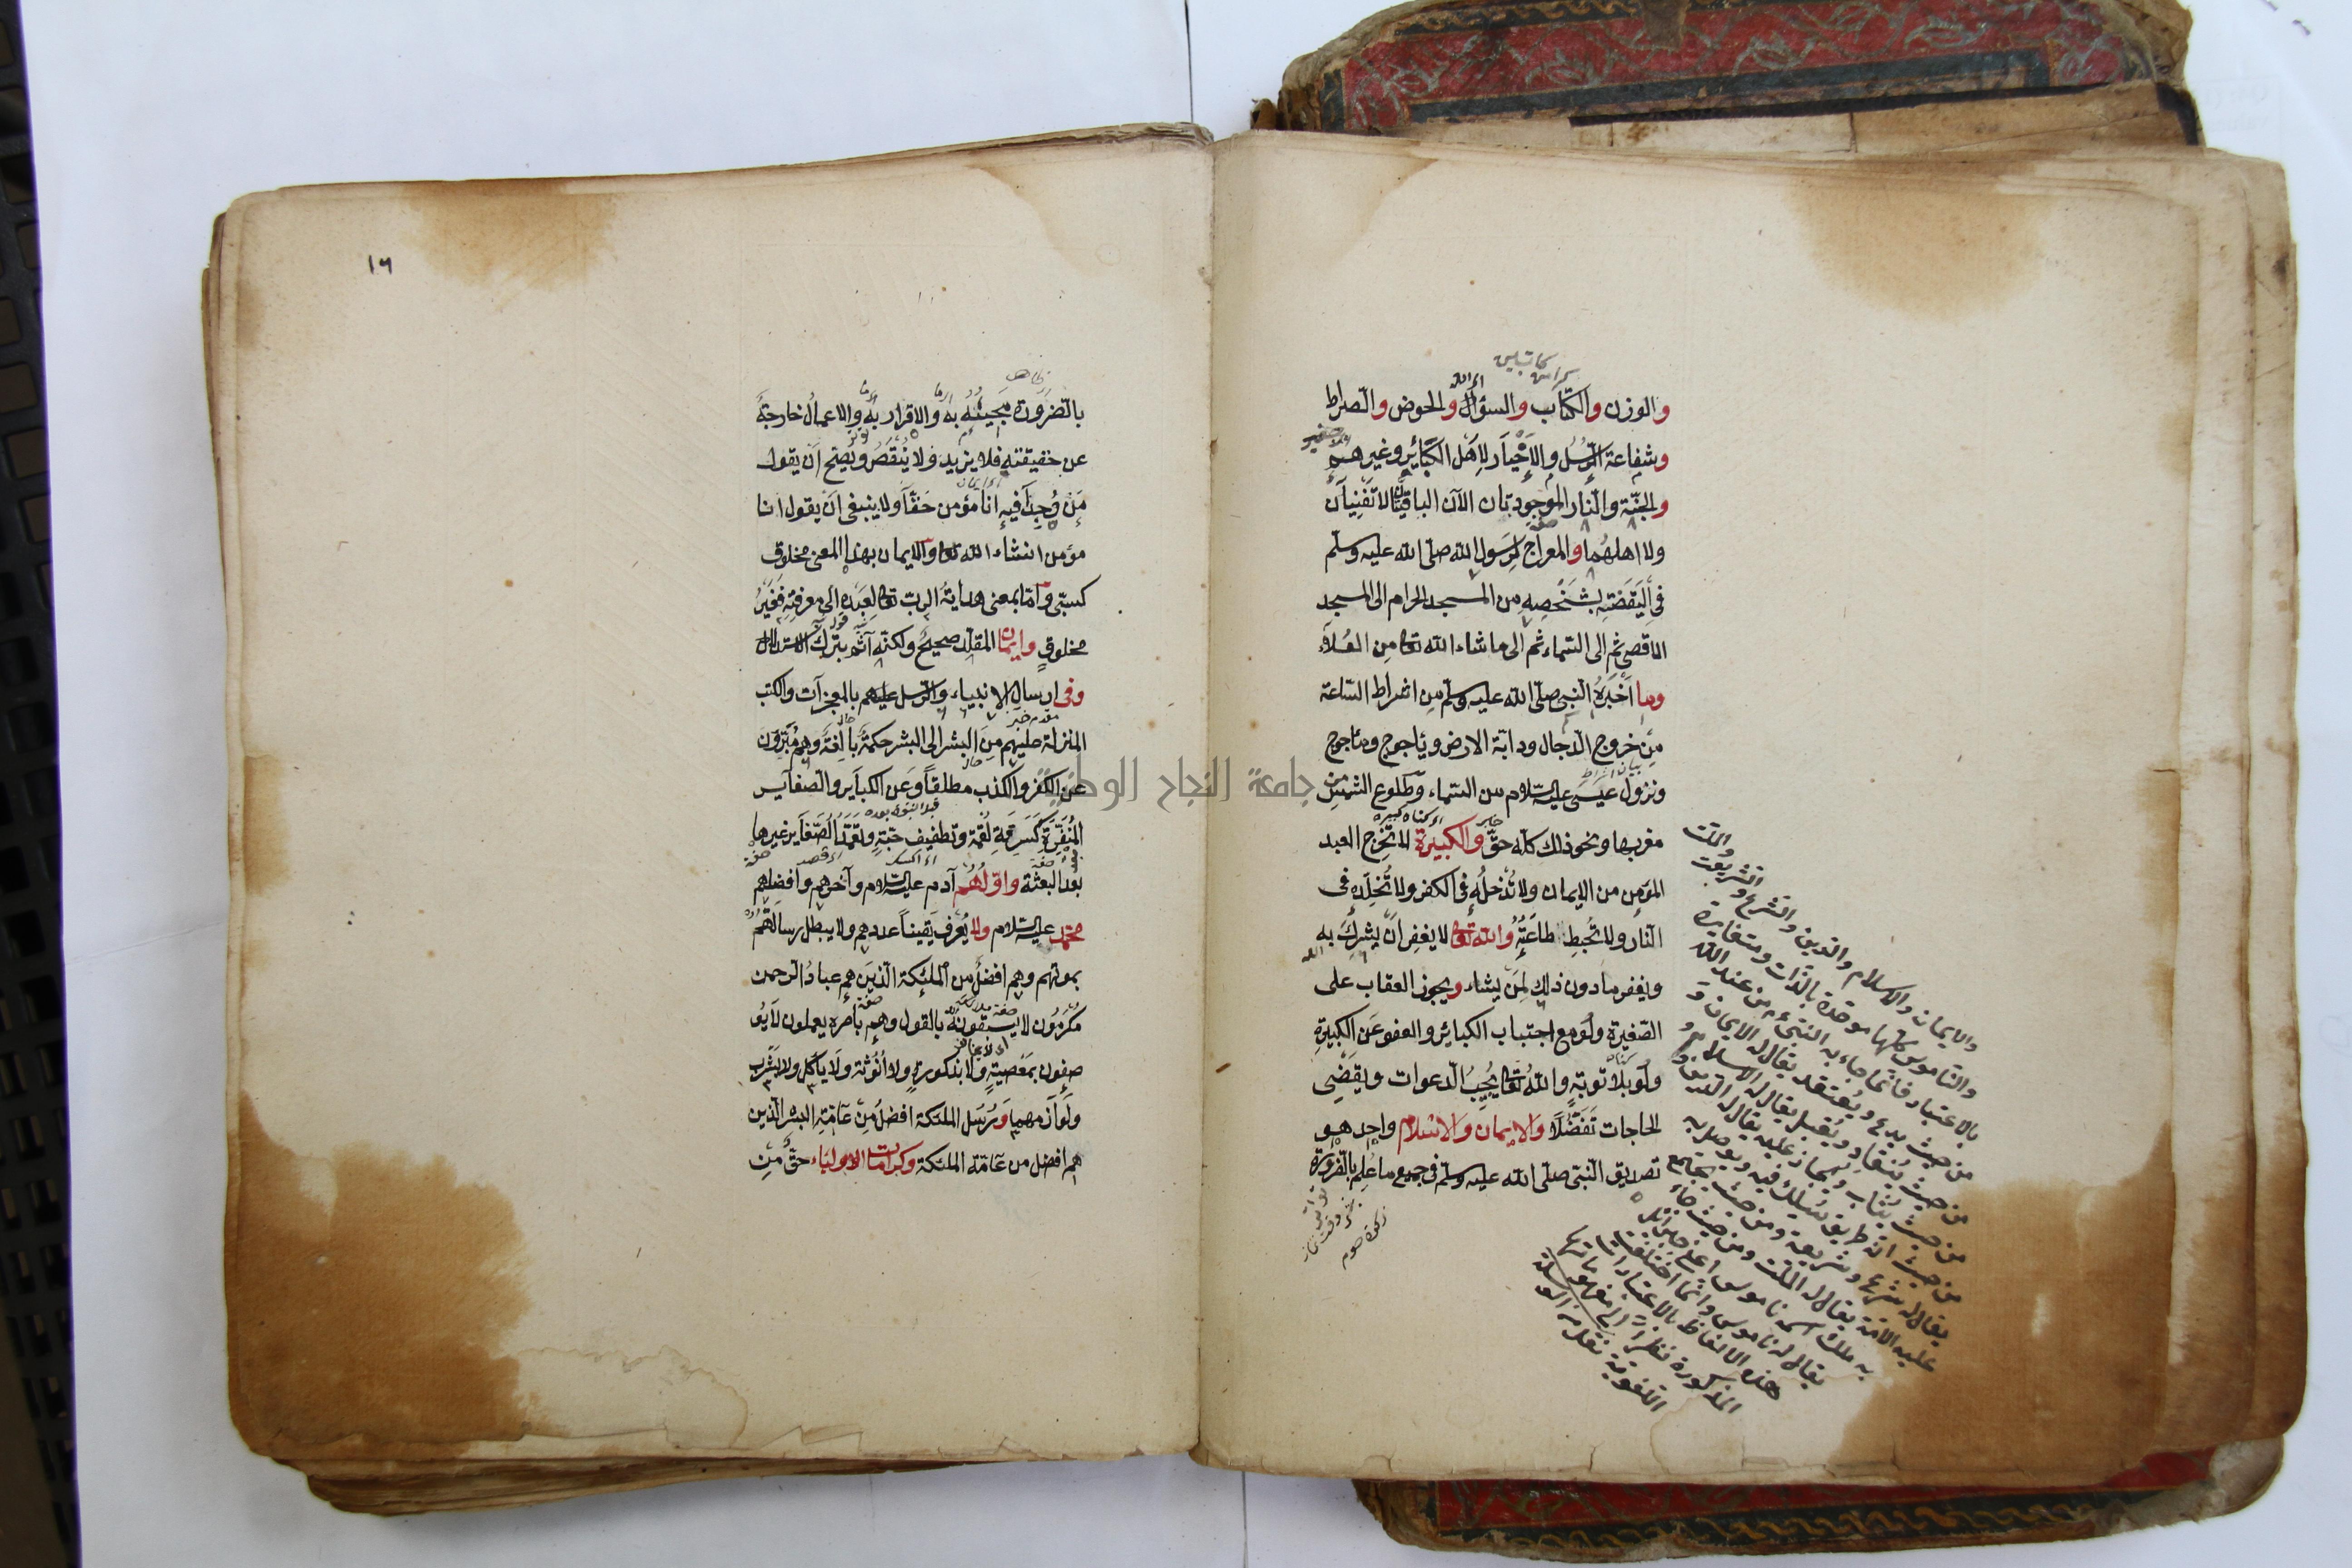 والوزن والكتاب والسؤال والحوض والصراط
وشفاعة الرسل والأخيار لأهل الكبائر وغيرهم
والجنة والنار الموجودتان الآن الباقيتان لا تفنيان
ولا اهلهما والمعراج لرسول الله صلى الله عليه وسلم
في اليقضته بشخصه من المسجد الحرام الى المسجد
الاقصى ثم الى السماء ثم الى ما شاء الله تعالى من العلاء
وما اخبره النبي صلى الله عليه وسلم من اشراط الساعة
من خروج الدجال ودابة الارض وياجوج وماجوج
ونزول عيسى عليه السلام من السماء وطلوع الشمس من
مغربها ونحو ذلك كله حق والكبيرة لا تخرج العبد
المؤمن من الايمان ولا تدخله في الكفر ولا تخلده في
النار ولا تحبط طاعته والله تعالى لا يغفر ان يشرك به
ويغفر ما دون ذلك لمن يشاء ويجوز العقاب على
الصغيرة ولو مع اجتناب الكبائر والعفو عن الكبيرة
ولو بلا توبة والله تعالى يجيب الدعوات ويقضي
الحاجات تفضلا والايمان والاسلام واحد هو
تصديق النبي صلى الله عليه وسلم في جميع ما علم بالضرورة
والملت
والايمان والاسلام والدين والشرع والشريعت
والناموس كلها موحدة بالذات ومتغايرة
بالاعتبار فان ما جاء به النبي من عند الله
من حيث يدع ويعتقد يقال له الايمان و
من حيث ينقاد ويقبل يقال له الاسلام و
من حيث يثاب ويجاز عليه يقال له الدين و
من حيث انه طريق يسلك فيه ويوصل به
يقال له شرع وشريعة ومن حيث يجتمع
عليه الامة يقال له الملت ومن حيث جاء
به ملك اسمه ناموس اعني جبرائيل
يقال له ناموس وانما اختلفت
هذه الالفاظ بالاعتبارات
المذكورة نظرا الى مفهوماتها
اللغوية نقل من
١٦
بالضرورة مجيئه به والاقرار به والاعمال خارجة
عن حقيقته فلا يزيد ولا ينقص ويصح ان يقول
من وجدا فيه انا مؤمن حقا ولا ينبغي ان يقول انا
مؤمن انشاء الله تعالى والايمان بهذا المعنى مخلوق
كسبي واما بمعنى هداية الرب تعالى لعبده الى معرفته فغير
مخلوق وايمان المقلد صحيح ولكنه آثم بترك الاستدلال
وفي ارسال الانبياء والرسل عليهم بالمعجزات والكتب
المنزلة عليهم من البشر الى البشر حكمة بالغة وهم مبرؤن
عن الكفر والكذب مطلقا وعن الكبائر والصغاير
المنفرة كسرقة لقمة وتطفيف حبة وتعمد الصغاير غيرها
بعد البعثة واولهم آدم عليه السلام وآخرهم وافضلهم
محمد عليه السلام ولا يعرف يقينا عددهم ولا يبطل رسالتهم
بموتهم وهم افضل من الملئكة الذين هم عباد الرحمن
مكرمون لا يسبقونه بالقول وهم بامره يعملون لا يو
صفون بمعصية ولا بذكورة ولا انوثة ولا ياكل ولا يشرب
ولوازمهما ورسل الملئكة افضل من عامة البشر الذين
هم افضل من عامة الملئكة وكرامات الاولياء حق من
جامعة النجاح الوطنية